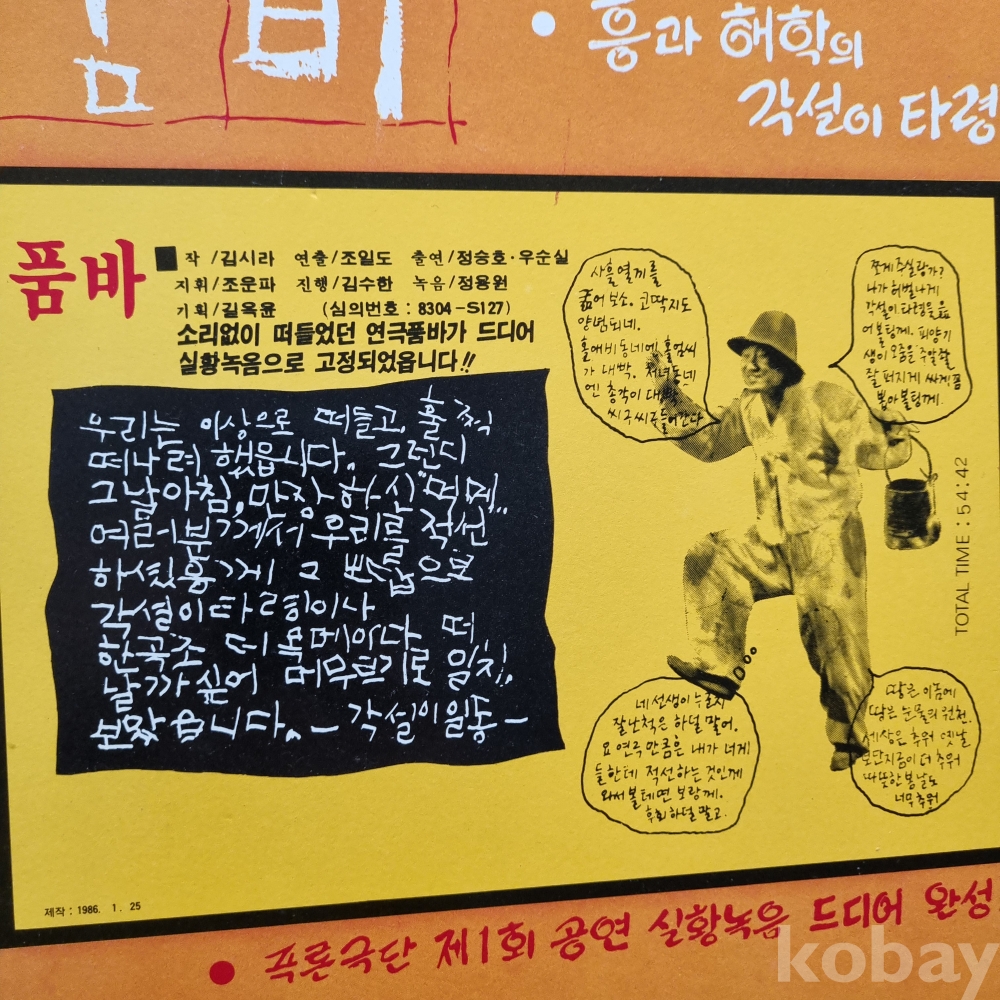 품비
• 흥과 해학의
각설이 타령
품바
■ 작 /김시라 연출/조일도 출연/정승호·우순실
지휘/조운파 진행/김수한 녹음/정용원
기획/길옥윤 (심의번호 : 8304-S127)
소리없이 떠들었던 연극품바가 드디어
실황녹음으로 고정되었읍니다!!
우리는 이상으로 떠들고, 훌쩍
떠나려 했읍니다. 그런디
그날아침, 만장하신
여러분께서 우리를 적선
하셨응께 그 빠룹으로
각설이타령이나
한곡조 더 올메이다 떠
날까싶어 머무르기로 일치
보았읍니다. - 각설이일동 -
사흘열끼를
굶어 보소. 고딱지도
양념되네.
홀애비동네에 홀엄씨
가 대빡. 처녀동네
엔 총각이 대빡
씨구씨구들어간다
쪼께주실랑가?
나가 허벌나게
각설이타령을 읊
어볼팅께. 피양기
생이 오줌을 주알잘
잘 퍼지게 싸게끔
뽑아볼팅께.
TOTAL TIME : 54:42
네 선생이 누군지
잘난척은 하덜 말어.
요 연극만큼은 내가 너게
들한테 적선하는것인께
와서 볼테면 보랑께.
후회하덜 말고.
땀은 이품에
땀은 눈물의 원천.
세상은 추워 옛날
보단지금이 더 추워
따뜻한봄날도
너무추워
제작 : 1986. 1. 25
• 푸른극단 제1회 공연 실황녹음 드디어 완성
kobay